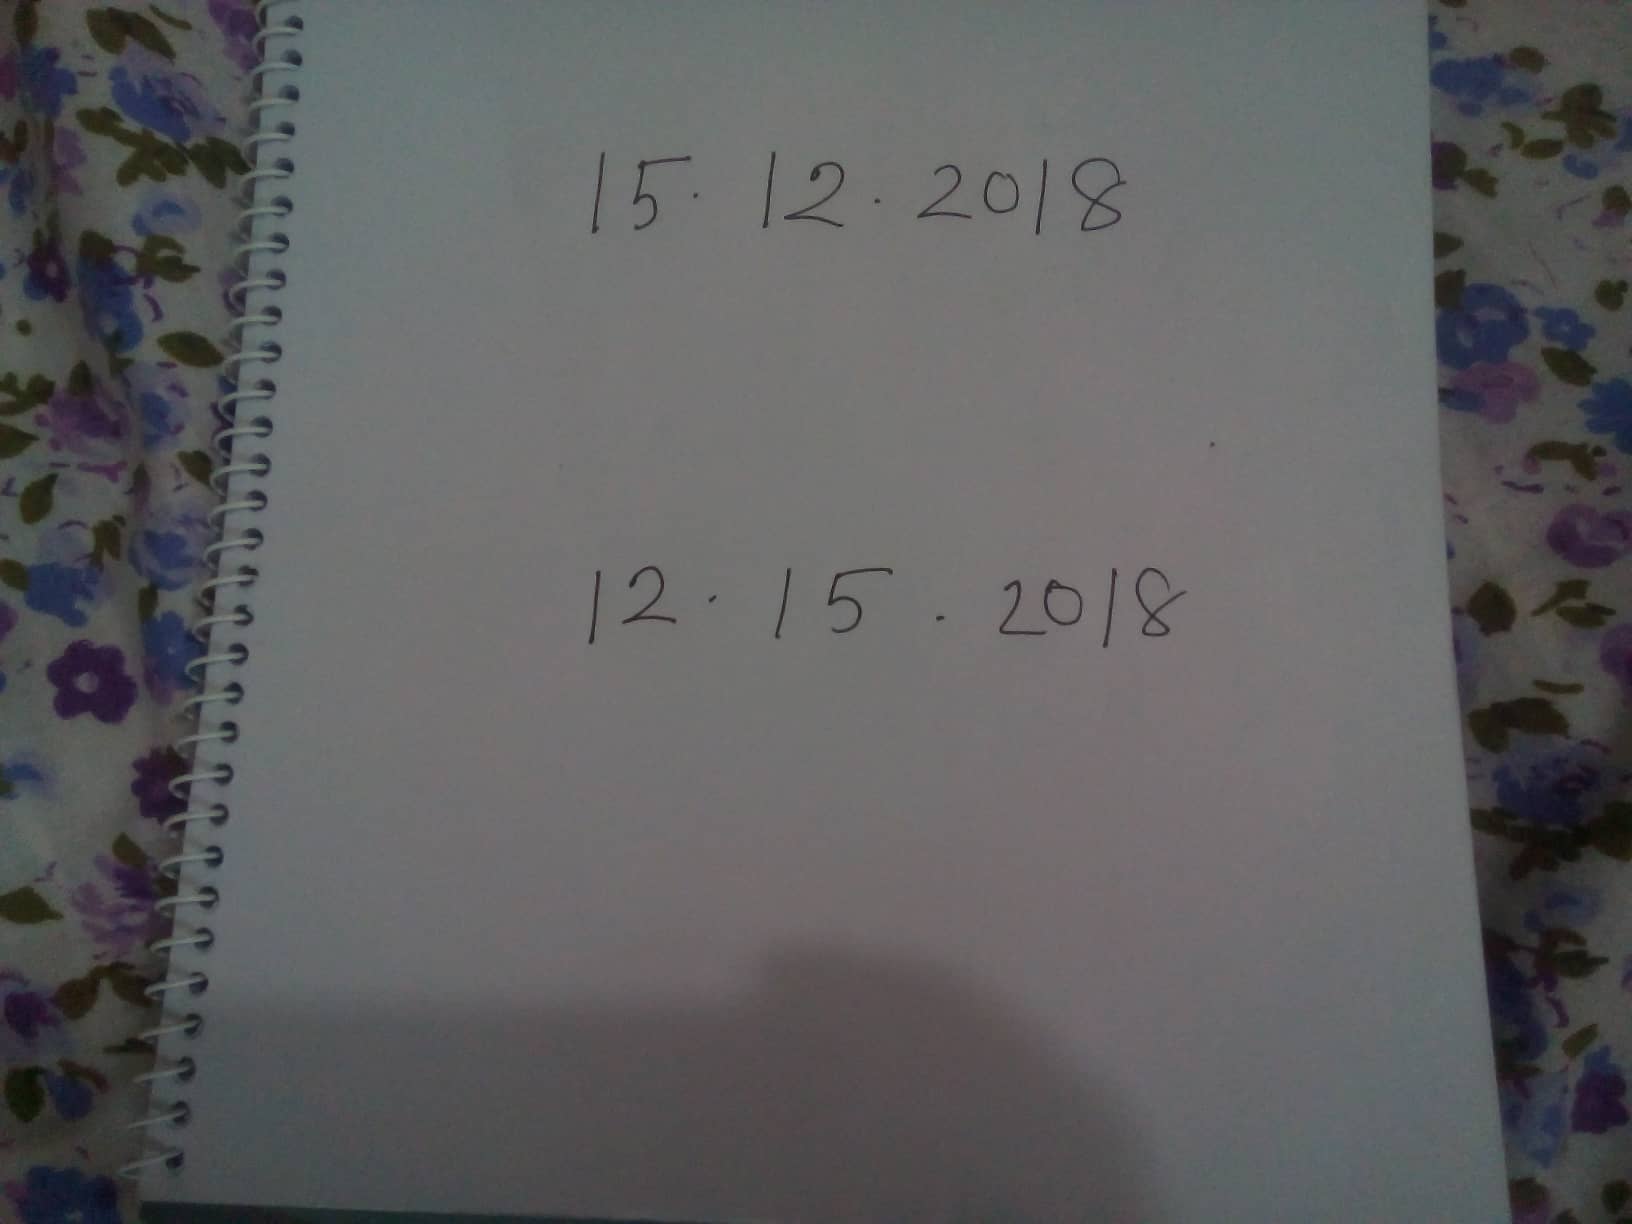 15. 12. 2018
12. 15. 2018